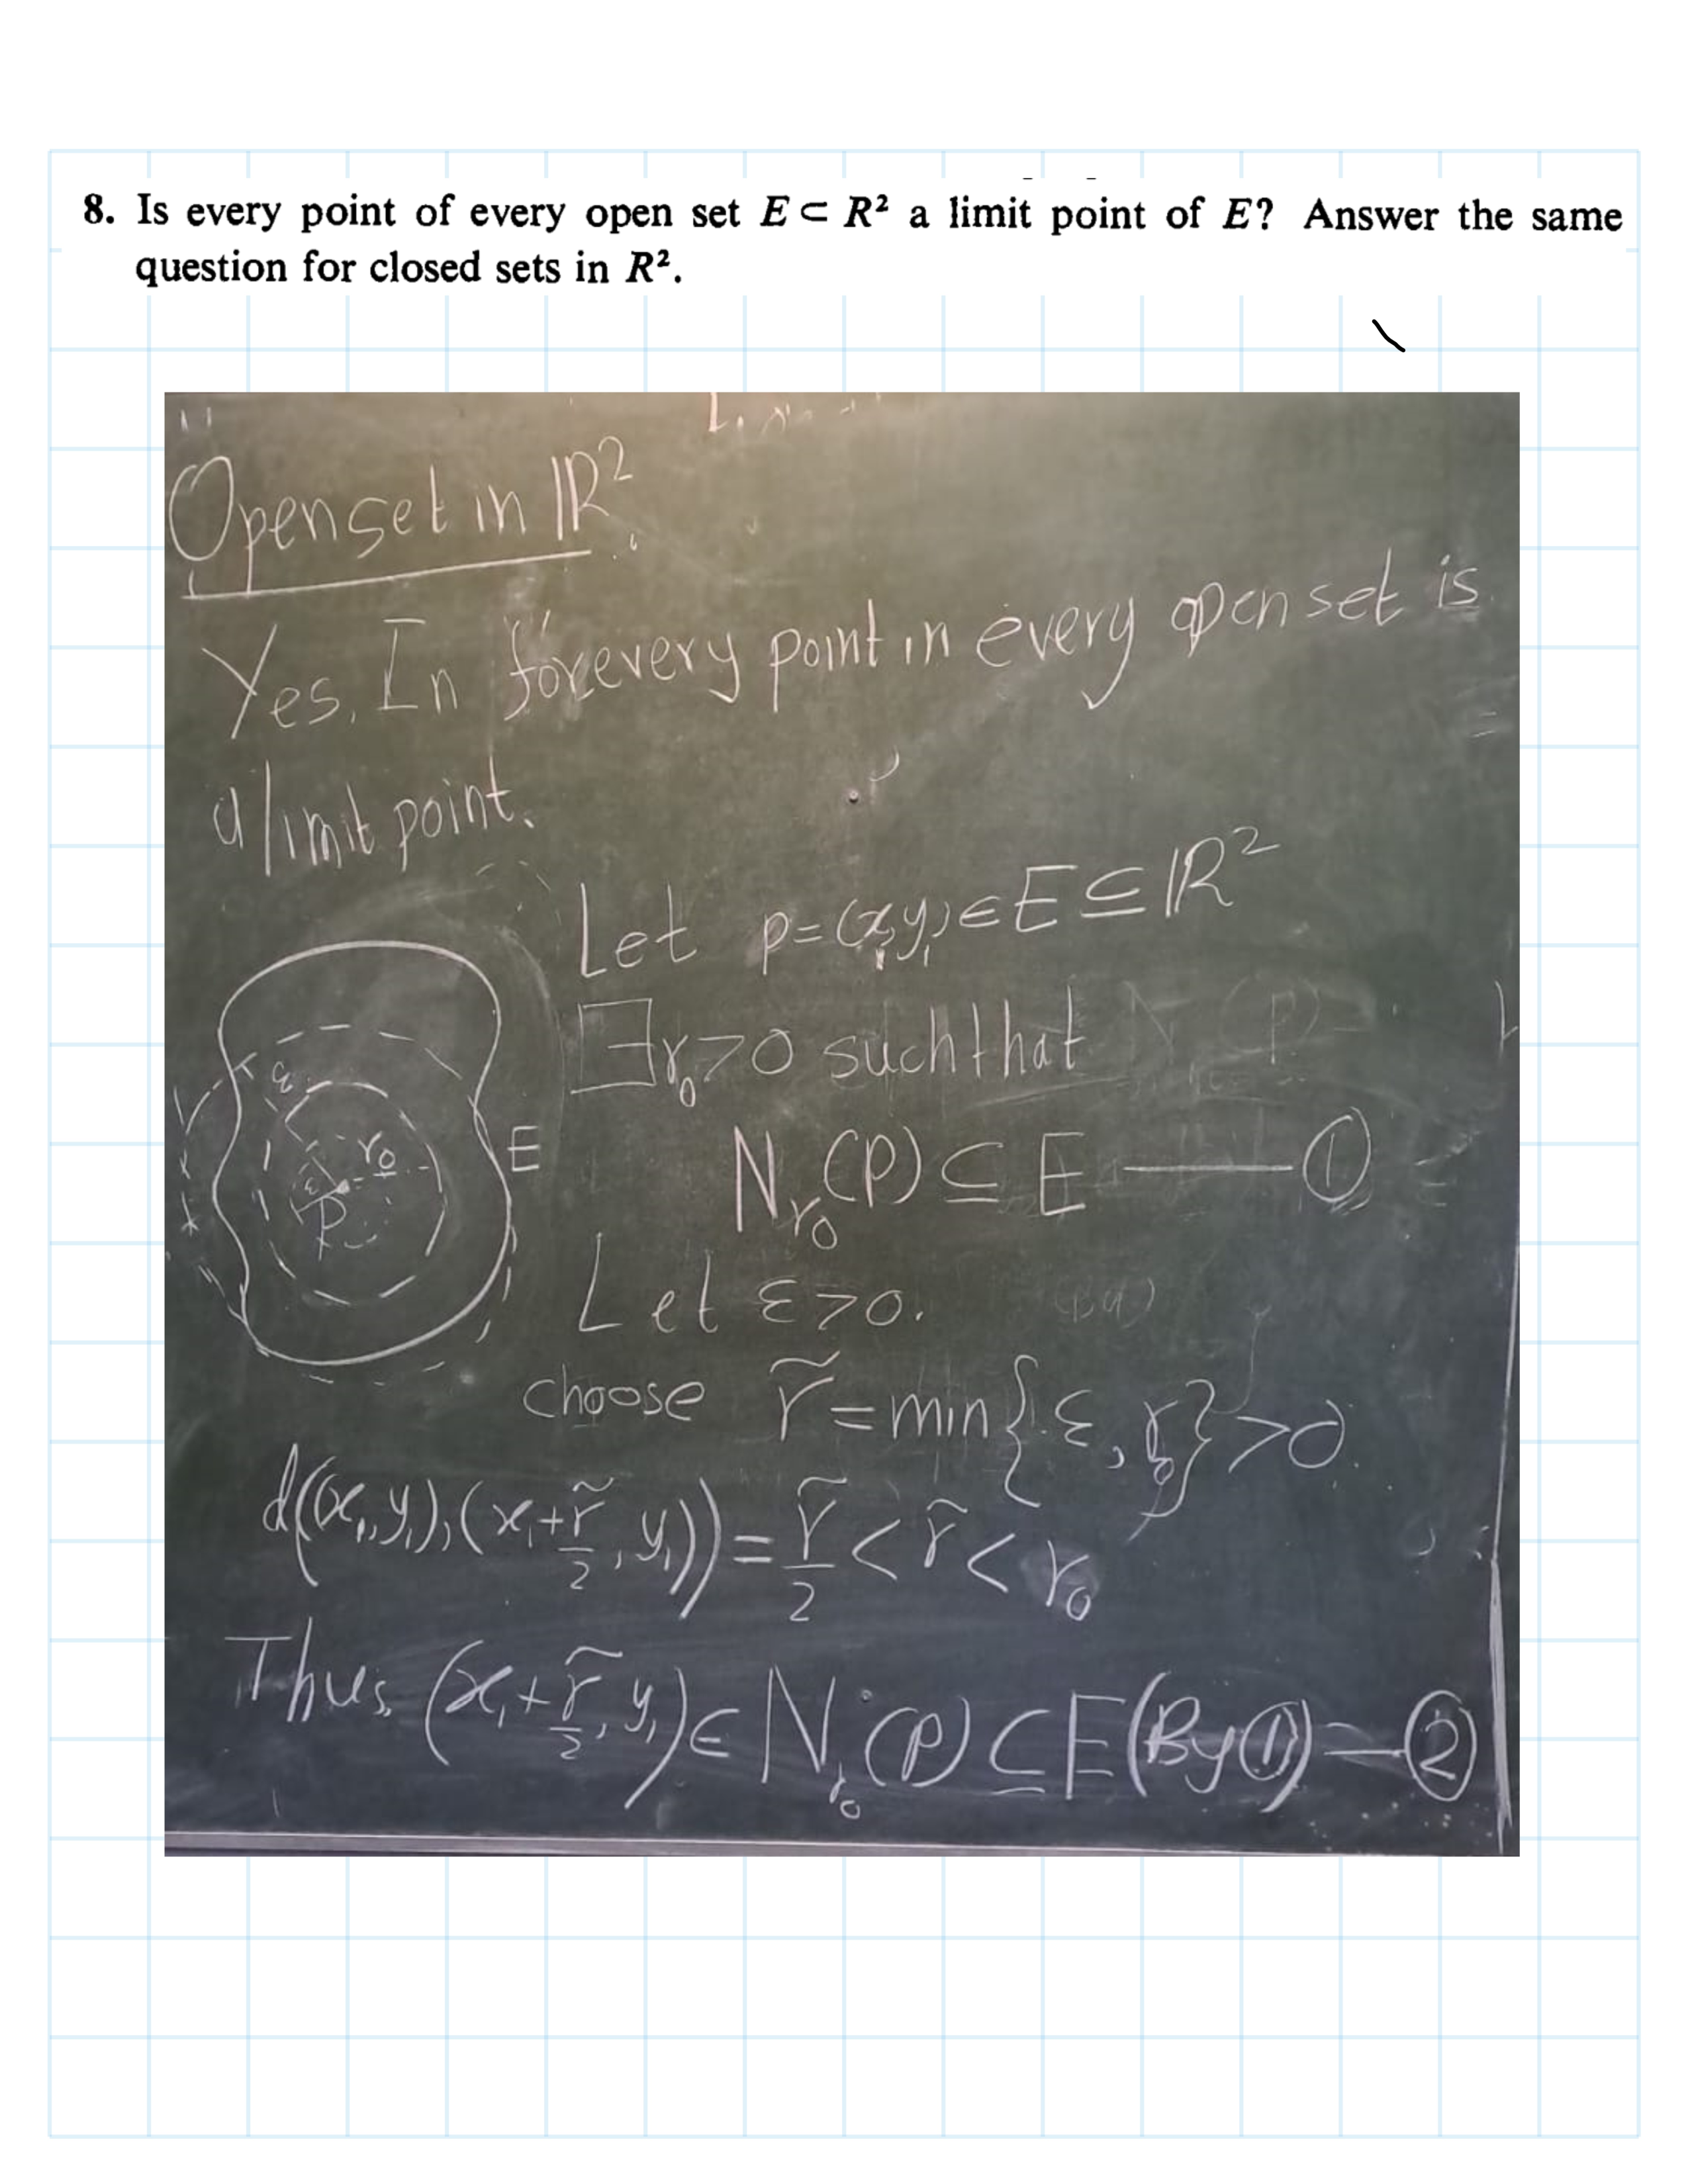 8. Is every point of every open set E ⊂ R² a limit point of E? Answer the same
question for closed sets in R².
Open set in ℝ²
Yes. In for every point in every open set is
a limit point.
Let p=(x₁,y₁)∈E⊆ℝ²
∃r₀>0 such that
N_r₀(p)⊆E —— ①
ε
r₀
E
ε
p
Let ε>0.
choose r̃=min{ε, r₀}>0.
d((x₁,y₁),(x₁+r̃/2, y₁))=r̃/2<r̃<r₀
Thus, (x₁+r̃/2, y₁)∈N_r₀(p)⊆E (By①)—②